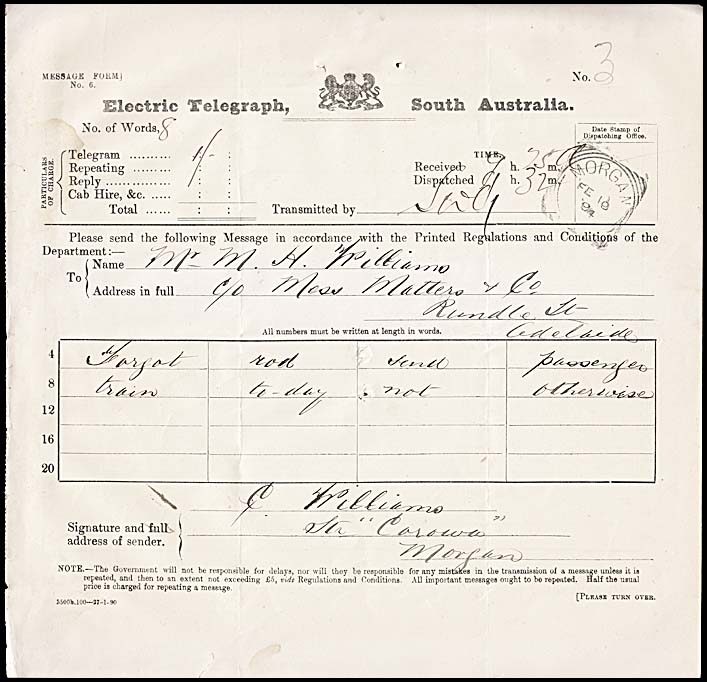 MESSAGE FORM}
No. 6.
No. 3
Electric Telegraph, South Australia.
No. of Words, 8
Date Stamp of
Dispatching Office.
PARTICULARS
OF CHARGE.
Telegram ........... 1/- :
Repeating ......... : :
Reply ................ : :
Cab Hire, &c. ...... : :
Total ...... : :
TIME.
Received 9 h. 25 m.
Dispatched 9 h. 32 m.
Transmitted by
MORGAN
FE 18
94
Please send the following Message in accordance with the Printed Regulations and Conditions of the
Department:—
To { Name Mr M. H. Williams
Address in full c/o Mess Matters & Co
Rundle St
Adelaide
All numbers must be written at length in words.
4 Forgot rod send passenger
8 train to-day not otherwise
12
16
20
C Williams
Signature and full
address of sender.
Str "Corowa"
Morgan
NOTE.—The Government will not be responsible for delays, nor will they be responsible for any mistakes in the transmission of a message unless it is
repeated, and then to an extent not exceeding £5, vide Regulations and Conditions. All important messages ought to be repeated. Half the usual
price is charged for repeating a message.
5500b.100—27-1-90
[PLEASE TURN OVER.